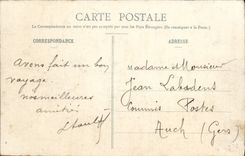 CARTE POSTALE
La Correspondance au recto n'est pas acceptée par tous les Pays Étrangers. (Se renseigner à la Poste.)
CORRESPONDANCE
ADRESSE
Avons fait un bon
voyage.
nos meilleures
amitiés
Madame et Monsieur
Jean Labadens
Commis Postes
Auch (Gers)